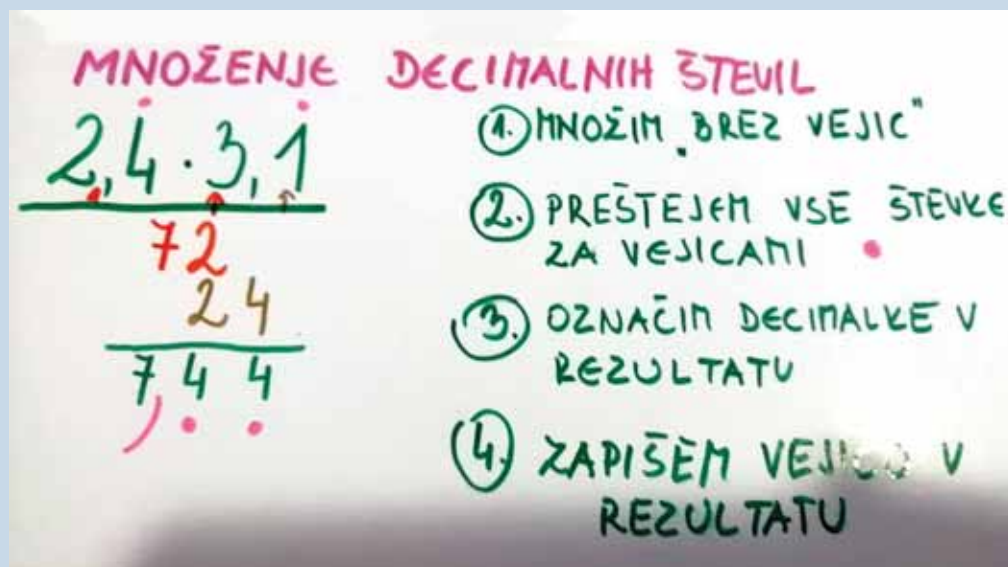 MNOŽENJE DECIMALNIH ŠTEVIL
2,4 · 3,1
72
24
7,44
1. MNOŽIM „BREZ VEJIC"
2. PREŠTEJEM VSE ŠTEVKE
ZA VEJICAMI
3. OZNAČIM DECIMALKE V
REZULTATU
4. ZAPIŠEM VEJICO V
REZULTATU